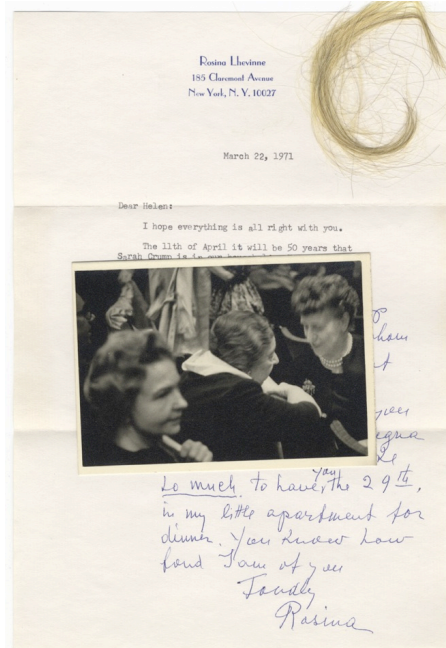 Rosina Lhevinne
185 Claremont Avenue
New York, N. Y. 10027
March 22, 1971
Dear Helen:
I hope everything is all right with you.
The 11th of April it will be 50 years that
Sarah Crump is in our
you
so much to have you the 29th,
in my little apartment for
dinner. You know how
fond I am of you
Fondly
Rosina